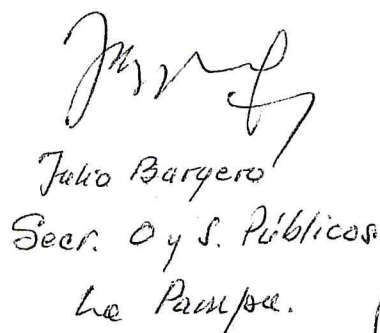 Julio Bargero
Secr. O y S. Públicos
La Pampa.